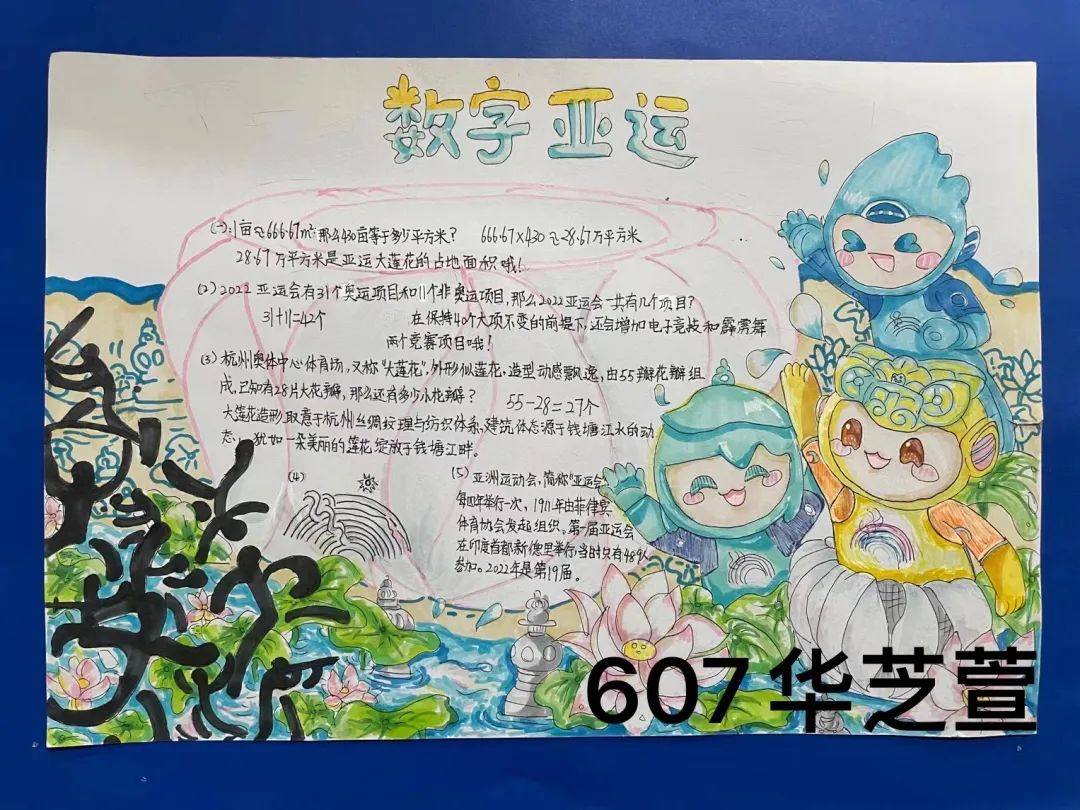 数字亚运
(一):1亩≈666.67m²那么430亩等于多少平方米? 666.67×430≈28.67万平方米
28.67万平方米是亚运大莲花的占地面积哦!
(2)2022亚运会有31个奥运项目和11个非奥运项目,那么2022亚运会一共有几个项目?
31+11=42个 在保持40个大项不变的前提下,还会增加电子竞技和霹雳舞
两个竞赛项目哦!
(3)杭州奥体中心体育场,又称"大莲花",外形似莲花,造型动感飘逸,由55瓣花瓣组
成,已知有28片大花瓣,那么还有多少小花瓣? 55-28=27个
大莲花造形取意于杭州丝绸纹理与纺织体系,建筑体态源于钱塘江水的动
态,犹如一朵美丽的莲花绽放于钱塘江畔。
(4)
(5)亚洲运动会,简称"亚运会
每四年举行一次,1911年由菲律宾
体育协会发起组织。第一届亚运会
在印度首都新德里举行,当时只有489人
参加。2022年是第19届。
607华芝萱